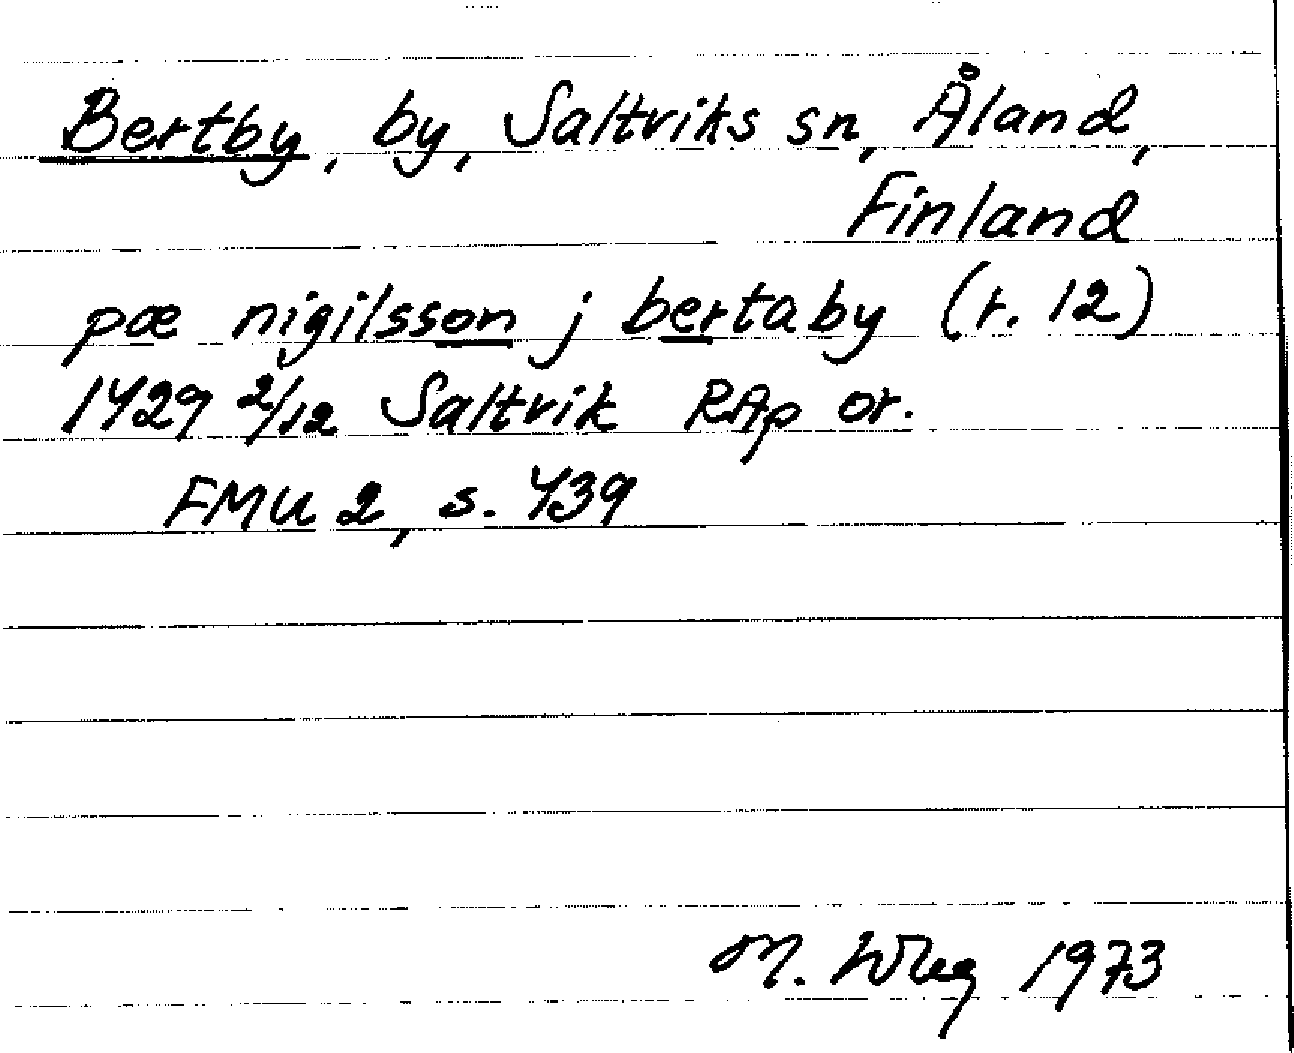 Bertby, by, Saltviks sn, Åland,
Finland
pæ nigilsson j bertaby (r. 12)
1429 2/12 Saltvik RAp or.
FMU 2, s. 439
M. 1973